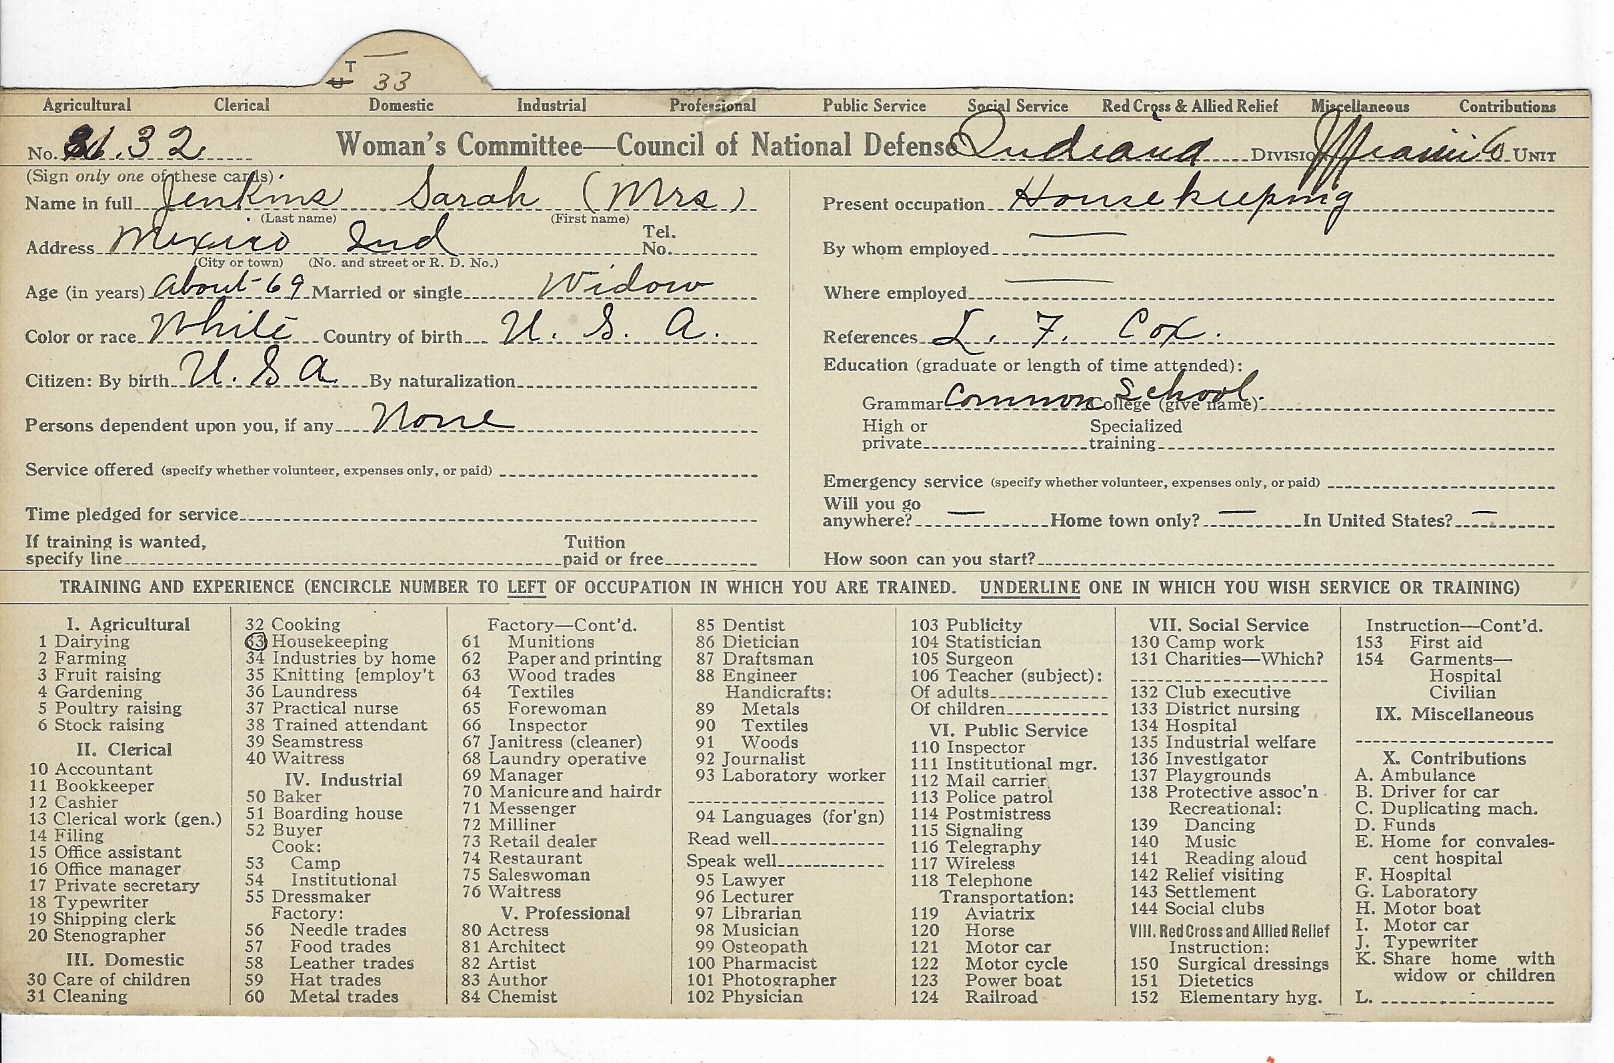 T
33
Agricultural Clerical Domestic Industrial Professional Public Service Social Service Red Cross & Allied Relief Miscellaneous Contributions
No. 32 Woman's Committee—Council of National Defense Indiana Division Miami Co Unit
(Sign only one of these cards)
Name in full Jenkins Sarah (Mrs)
(Last name) (First name)
Address Mexico Ind Tel. No.
(City or town) (No. and street or R. D. No.)
Age (in years) About 69 Married or single Widow
Color or race White Country of birth U. S. A.
Citizen: By birth U. S A By naturalization
Persons dependent upon you, if any None
Service offered (specify whether volunteer, expenses only, or paid)
Time pledged for service
If training is wanted,
specify line Tuition paid or free
Present occupation Housekeeping
By whom employed —
Where employed —
References L. F. Cox.
Education (graduate or length of time attended):
Grammar Common School. College (give name)
High or private Specialized training
Emergency service (specify whether volunteer, expenses only, or paid)
Will you go anywhere? — Home town only? — In United States? —
How soon can you start?
TRAINING AND EXPERIENCE (ENCIRCLE NUMBER TO LEFT OF OCCUPATION IN WHICH YOU ARE TRAINED. UNDERLINE ONE IN WHICH YOU WISH SERVICE OR TRAINING)
I. Agricultural
1 Dairying
2 Farming
3 Fruit raising
4 Gardening
5 Poultry raising
6 Stock raising
II. Clerical
10 Accountant
11 Bookkeeper
12 Cashier
13 Clerical work (gen.)
14 Filing
15 Office assistant
16 Office manager
17 Private secretary
18 Typewriter
19 Shipping clerk
20 Stenographer
III. Domestic
30 Care of children
31 Cleaning
32 Cooking
33 Housekeeping
34 Industries by home
35 Knitting [employ't
36 Laundress
37 Practical nurse
38 Trained attendant
39 Seamstress
40 Waitress
IV. Industrial
50 Baker
51 Boarding house
52 Buyer
Cook:
53 Camp
54 Institutional
55 Dressmaker
Factory:
56 Needle trades
57 Food trades
58 Leather trades
59 Hat trades
60 Metal trades
Factory—Cont'd.
61 Munitions
62 Paper and printing
63 Wood trades
64 Textiles
65 Forewoman
66 Inspector
67 Janitress (cleaner)
68 Laundry operative
69 Manager
70 Manicure and hairdr
71 Messenger
72 Milliner
73 Retail dealer
74 Restaurant
75 Saleswoman
76 Waitress
V. Professional
80 Actress
81 Architect
82 Artist
83 Author
84 Chemist
85 Dentist
86 Dietician
87 Draftsman
88 Engineer
Handicrafts:
89 Metals
90 Textiles
91 Woods
92 Journalist
93 Laboratory worker
94 Languages (for'gn)
Read well
Speak well
95 Lawyer
96 Lecturer
97 Librarian
98 Musician
99 Osteopath
100 Pharmacist
101 Photographer
102 Physician
103 Publicity
104 Statistician
105 Surgeon
106 Teacher (subject):
Of adults
Of children
VI. Public Service
110 Inspector
111 Institutional mgr.
112 Mail carrier
113 Police patrol
114 Postmistress
115 Signaling
116 Telegraphy
117 Wireless
118 Telephone
Transportation:
119 Aviatrix
120 Horse
121 Motor car
122 Motor cycle
123 Power boat
124 Railroad
VII. Social Service
130 Camp work
131 Charities—Which?
132 Club executive
133 District nursing
134 Hospital
135 Industrial welfare
136 Investigator
137 Playgrounds
138 Protective assoc'n
Recreational:
139 Dancing
140 Music
141 Reading aloud
142 Relief visiting
143 Settlement
144 Social clubs
VIII. Red Cross and Allied Relief
Instruction:
150 Surgical dressings
151 Dietetics
152 Elementary hyg.
Instruction—Cont'd.
153 First aid
154 Garments—
Hospital
Civilian
IX. Miscellaneous
X. Contributions
A. Ambulance
B. Driver for car
C. Duplicating mach.
D. Funds
E. Home for convales-
cent hospital
F. Hospital
G. Laboratory
H. Motor boat
I. Motor car
J. Typewriter
K. Share home with
widow or children
L.